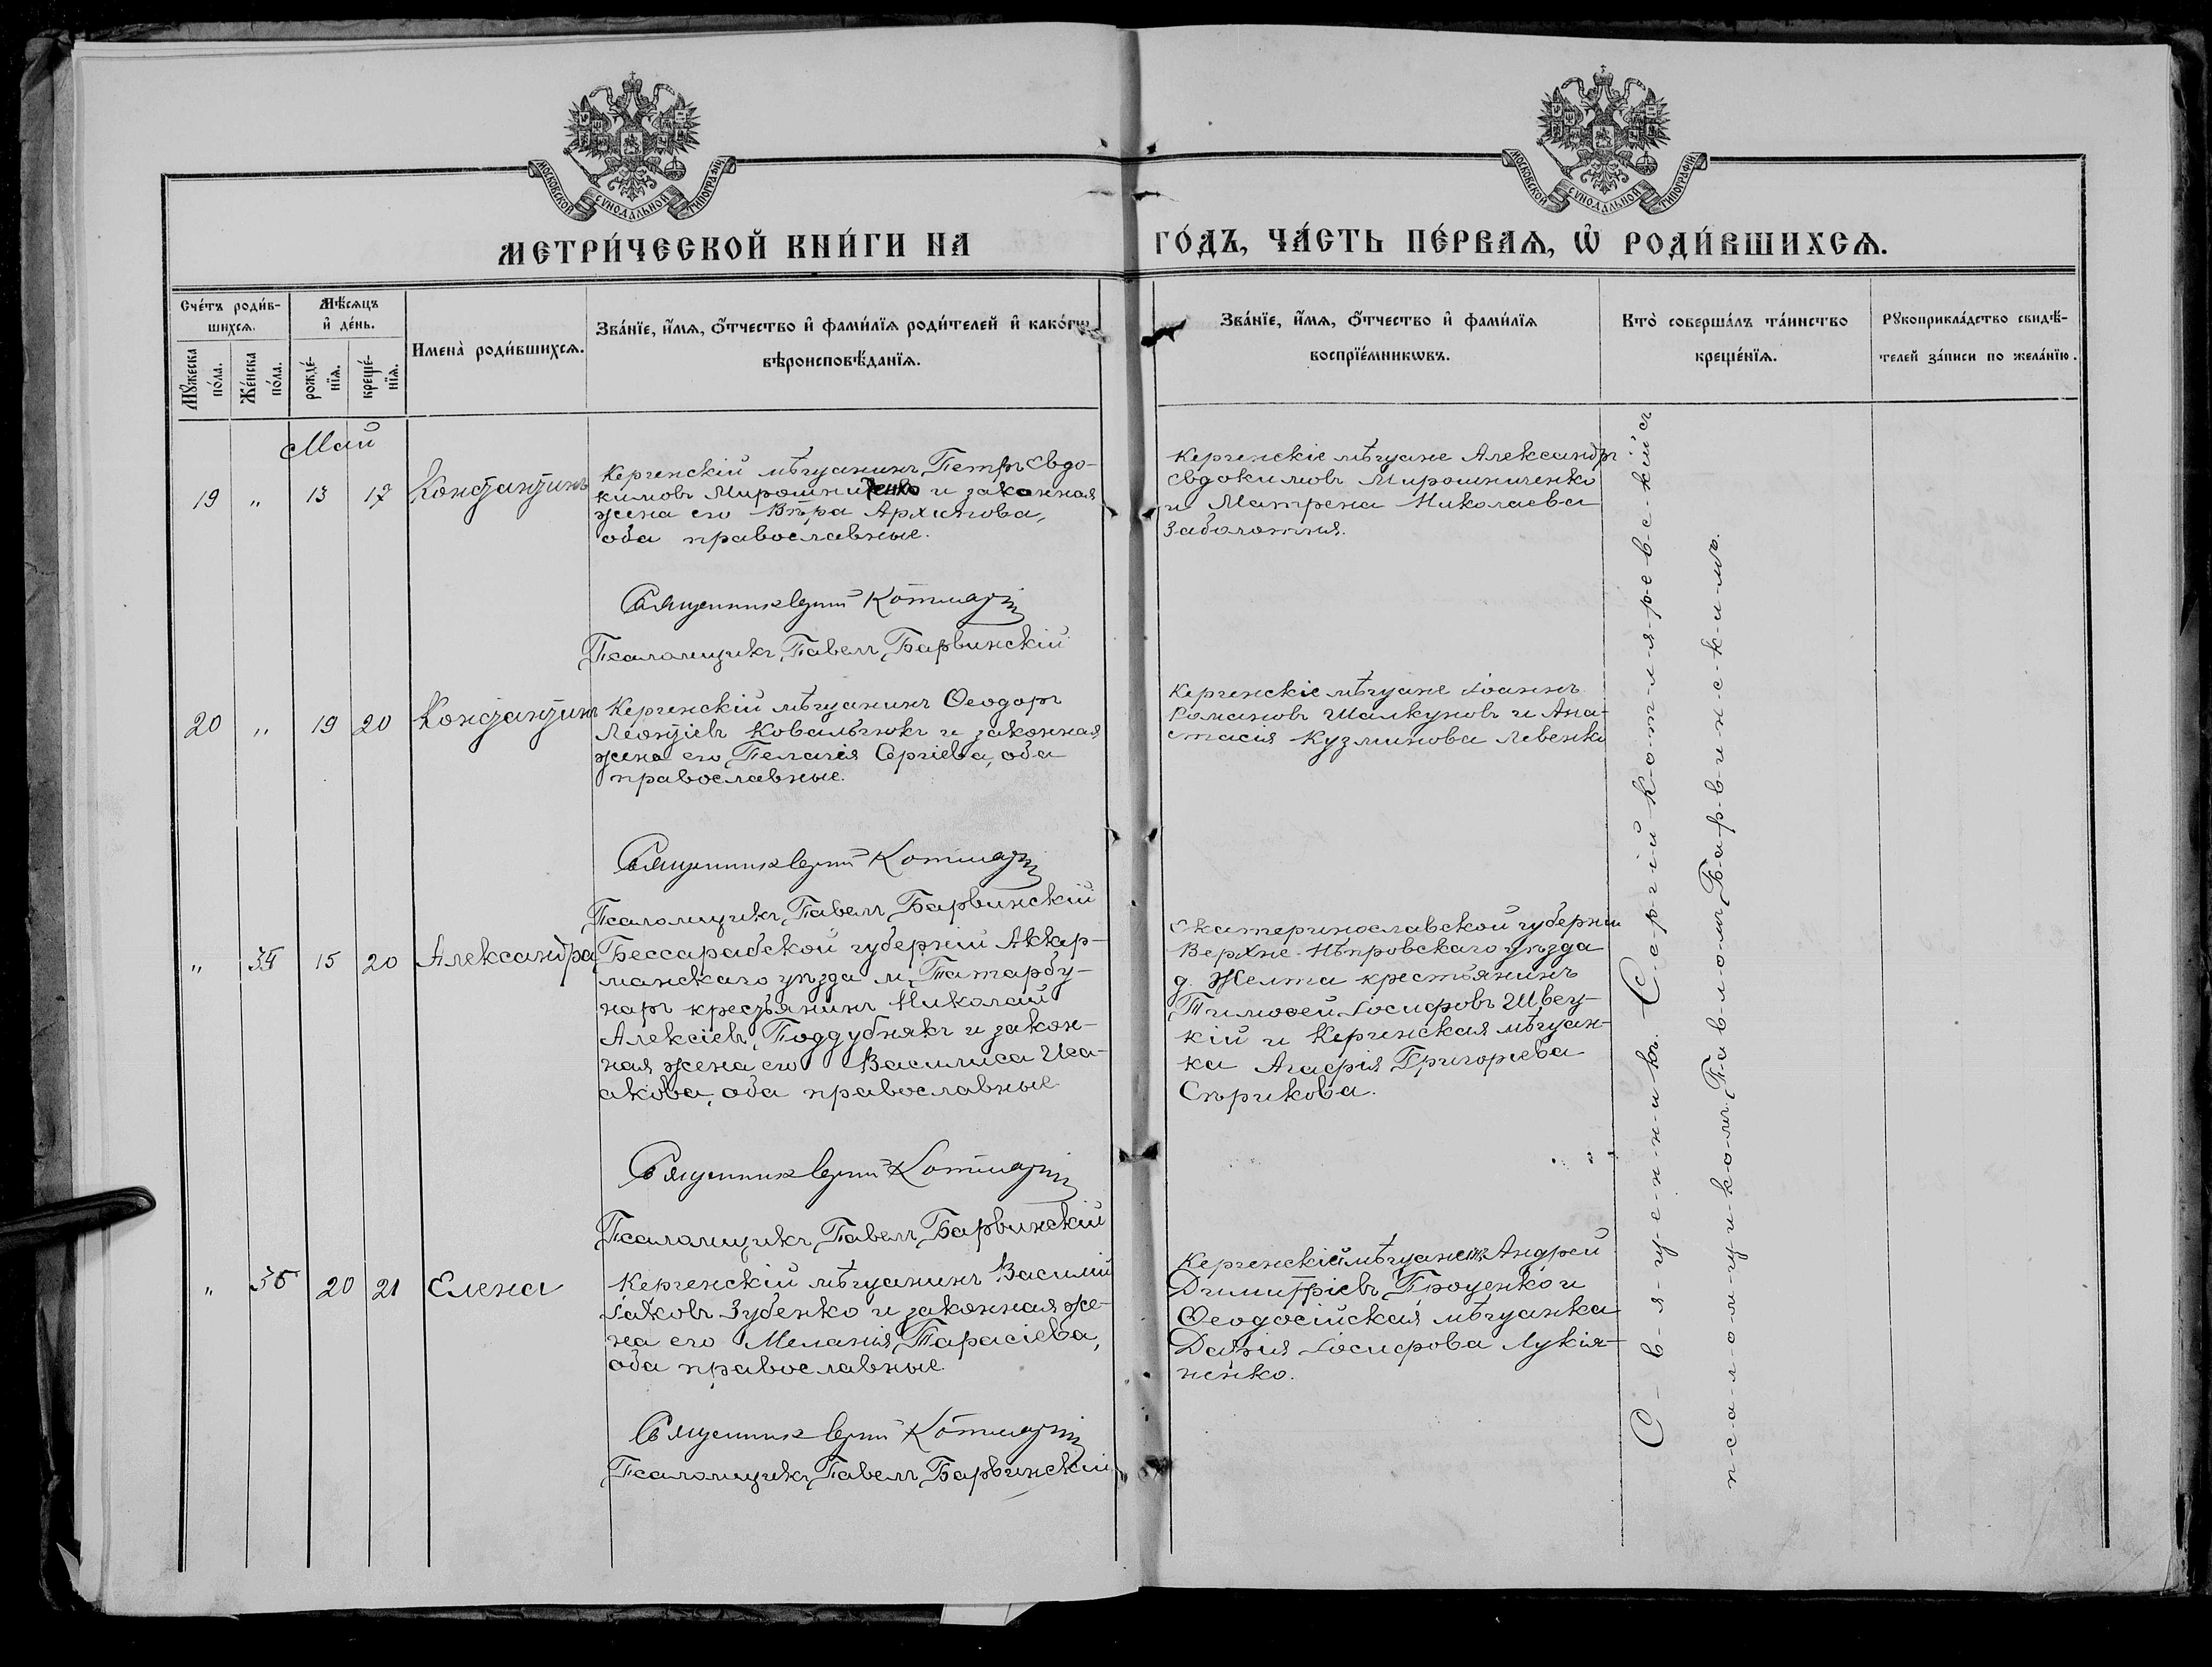 МОСКОВСКОЙ СѴНОДАЛЬНОЙ ТИПОГРАФІИ
МОСКОВСКОЙ СѴНОДАЛЬНОЙ ТИПОГРАФІИ
МЕТРИ́ЧЕСКОЙ КНИ́ГИ НА
ГО́ДЪ, ЧА́СТЬ ПЕ́РВАѦ, Ѽ РОДИ́ВШИХСѦ.
Сче́тъ роди́в-
шихсѧ.
Мꙋ́жеска по́ла.
Же́нска по́ла.
Мѣ́сѧцъ
и҆ де́нь.
рожде́-
нїѧ.
креще́-
нїѧ.
Имена̀ роди́вшихсѧ.
Зва́нїе, и҆́мѧ, ѻ҆́тчество и҆ фами́лїѧ роди́телей и҆ како́гѡ
вѣроисповѣ́данїѧ.
Зва́нїе, и҆́мѧ, ѻ҆́тчество и҆ фами́лїѧ
воспрїе́мникѡвъ.
Кто̀ соверша́лъ та́инство
креще́нїѧ.
Рꙋкоприкла́дство свидѣ́-
телей за́писи по жела́нїю.
Май
19 " 13 17 Константинъ
Керченскій мѣщанинъ Петръ Евдо-
кимовъ Мирошниченко и законная
жена его Вѣра Архипова,
оба православные.
Священникъ Сергій Котляр
Псаломщикъ Павелъ Барвинскій
Керченскіе мѣщане Александръ
Евдокимовъ Мирошниченко
и Матрена Николаева
Заболотняя.
20 " 19 20 Константинъ
Керченскій мѣщанинъ Ѳеодоръ
Леонтіевъ Ковальчукъ и законная
жена его Пелагія Сергіева, оба
православные.
Священникъ Сергій Котляр
Псаломщикъ Павелъ Барвинскій
Керченскіе мѣщане Іоаннъ
Романовъ Шалкуновъ и Ана-
стасія Кузминова Левенко
" 34 15 20 Александра
Бессарабской губерніи Аккер-
манскаго уѣзда м. Татарбу-
наръ крестьянинъ Николай
Алексіевъ Поддубнякъ и закон-
ная жена его Василиса Иса-
акова, оба православные
Священникъ Сергій Котляр
Псаломщикъ Павелъ Барвинскій
Екатеринославской губерніи
Верхне-Нѣпровскаго уѣзда
д. Желта крестьянинъ
Тимоѳей Іосифовъ Швец-
кій и Керченская мѣщан-
ка Агафія Григорьева
Сѣрикова.
" 35 20 21 Елена
Керченскій мѣщанинъ Василій
Іаковъ Зубенко и законная же-
на его Меланія Тарасіева,
оба православные
Священникъ Сергій Котляр
Псаломщикъ Павелъ Барвинскій
Керченскій мѣщанинъ Андрей
Димитріевъ Проценко и
Ѳеодосійская мѣщанка
Дарія Іосифова Лукія-
ненко.
С-в-я-щ-е-н-н-и-къ С-е-р-г-і-й К-о-т-л-я-р-е-в-с-к-ій съ
п-с-а-л-о-м-щ-и-к-о-мъ П-а-в-л-о-мъ Б-а-р-в-и-н-с-к-и-мъ.